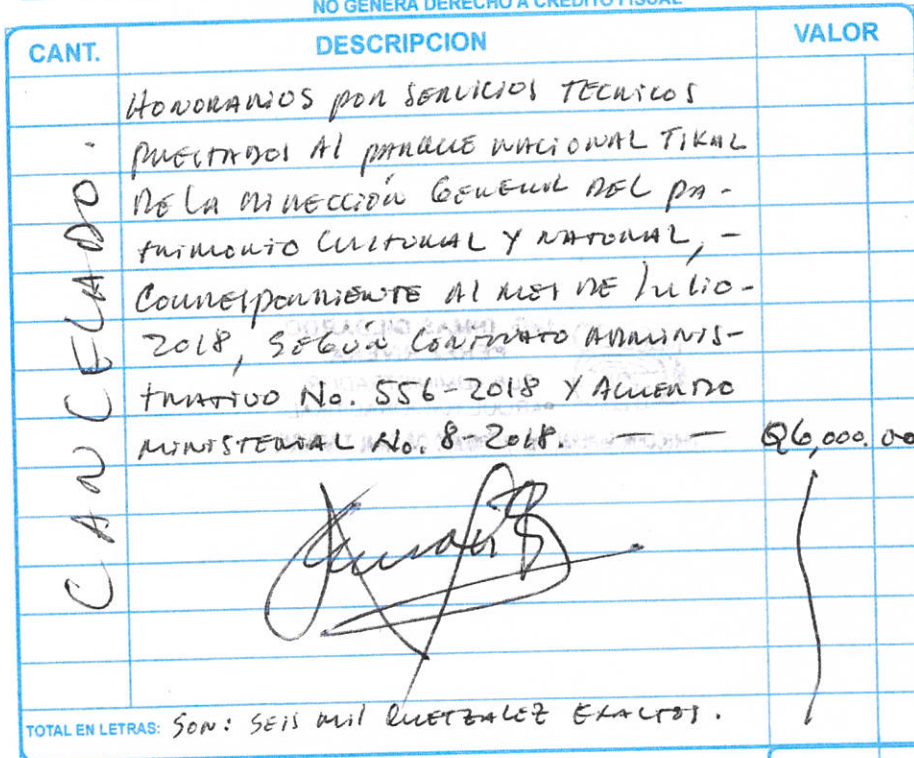 NO GENERA DERECHO A CREDITO FISCAL
CANT. DESCRIPCION VALOR
CANCELADO.
HONORARIOS POR SERVICIOS TECNICOS
PRESTADOS AL PARQUE NACIONAL TIKAL
DE LA DIRECCIÓN GENERAL DEL PA-
TRIMONIO CULTURAL Y NATURAL, -
CORRESPONDIENTE AL MES DE JULIO-
2018, SEGÚN CONTRATO ADMINIS-
TRATIVO No. 556-2018 Y ACUERDO
MINISTERIAL No. 8-2018. — — Q6,000.00
TOTAL EN LETRAS: SON: SEIS MIL QUETZALEZ EXACTOS.